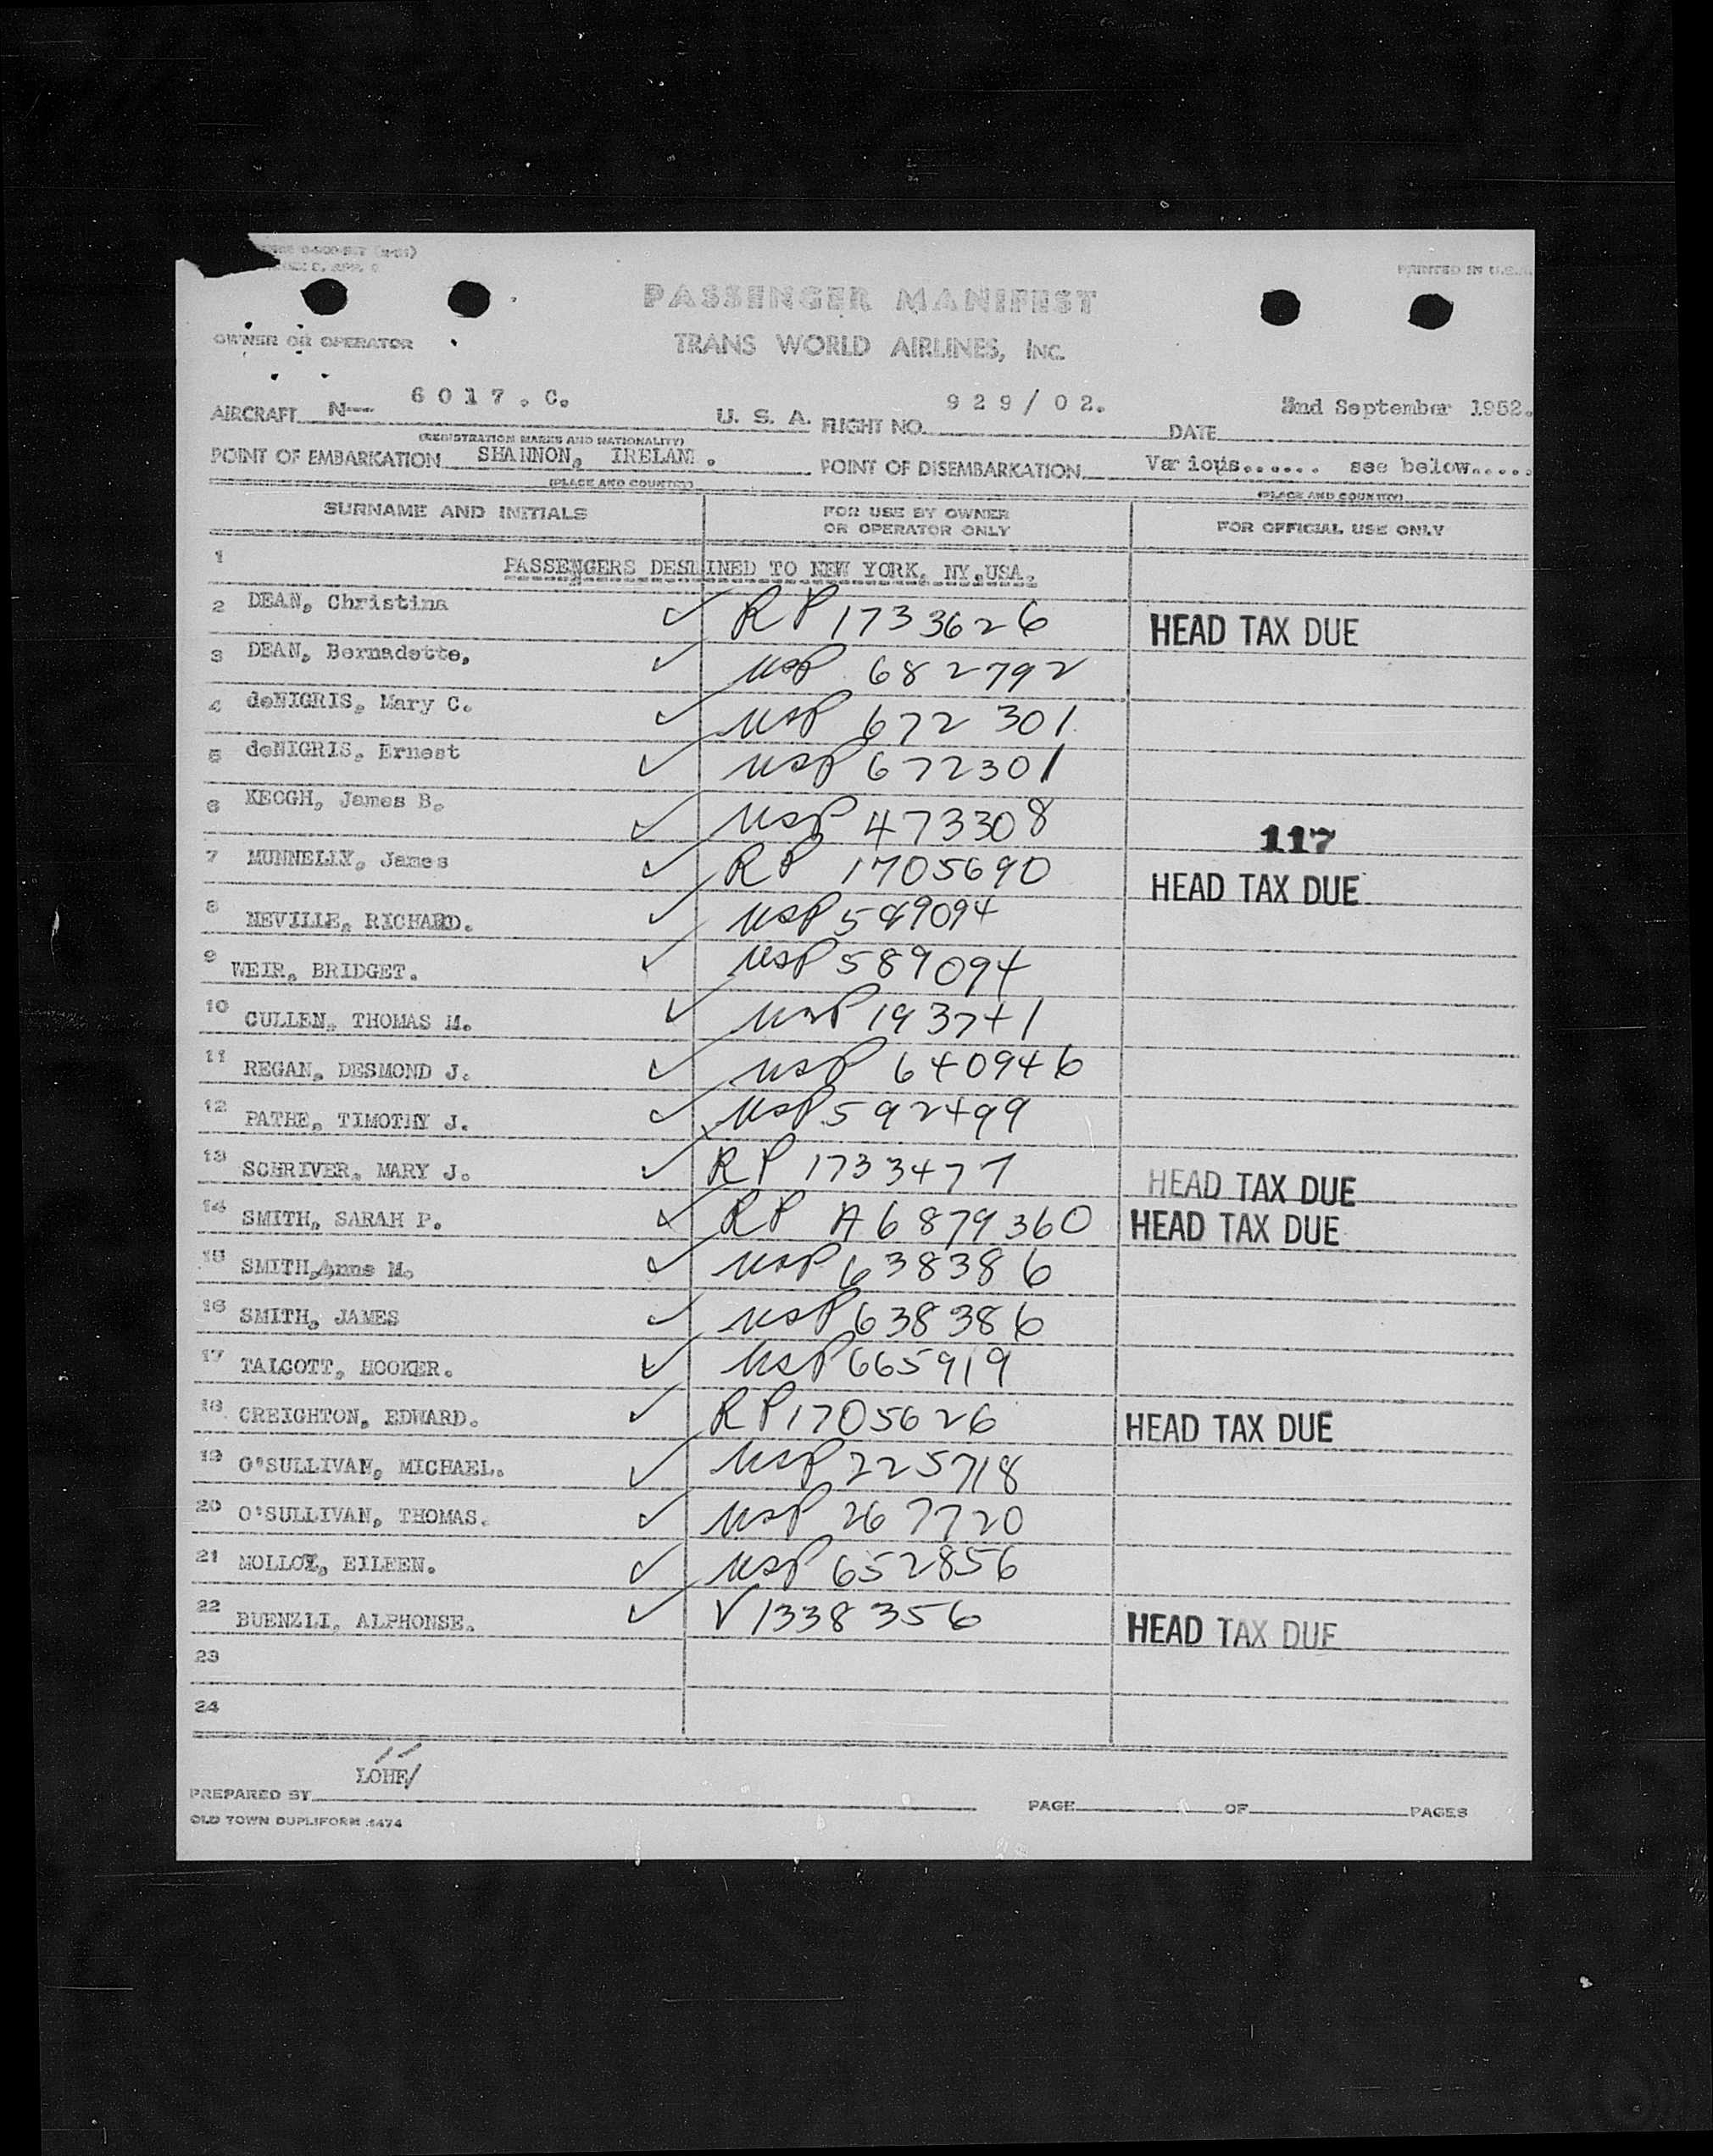 PRINTED IN U.S.A.
PASSENGER MANIFEST
OWNER OR OPERATOR
TRANS WORLD AIRLINES, INC.
AIRCRAFT N-- 6017.C. U. S. A. FLIGHT NO. 929/02. DATE 2nd September 1952.
(REGISTRATION MARKS AND NATIONALITY)
POINT OF EMBARKATION SHANNON, IRELAND. POINT OF DISEMBARKATION Various...... see below.....
(PLACE AND COUNTRY) (PLACE AND COUNTRY)
SURNAME AND INITIALS FOR USE BY OWNER OR OPERATOR ONLY FOR OFFICIAL USE ONLY
1 PASSENGERS DESTINED TO NEW YORK, NY.USA.
2 DEAN, Christina ✓ RP 1733626 HEAD TAX DUE
3 DEAN, Bernadette, ✓ USP 682792
4 deNIGRIS, Mary C. ✓ USP 672301
5 deNIGRIS, Ernest ✓ USP 672301
6 KEOGH, James B. ✓ USP 473308 117
7 MUNNELLY, James ✓ RP 1705690 HEAD TAX DUE
8 NEVILLE, RICHARD. ✓ USP 589094
9 WEIR, BRIDGET. ✓ USP 589094
10 CULLEN, THOMAS M. ✓ USP 193741
11 REGAN, DESMOND J. ✓ USP 640946
12 PATHE, TIMOTHY J. ✓ USP 592499
13 SCHRIVER, MARY J. ✓ RP 1733477 HEAD TAX DUE
14 SMITH, SARAH P. ✓ RP A6879360 HEAD TAX DUE
15 SMITH, Anne M. ✓ USP 638386
16 SMITH, JAMES ✓ USP 638386
17 TALCOTT, HOOKER. ✓ USP 665919
18 CREIGHTON, EDWARD. ✓ RP 1705626 HEAD TAX DUE
19 O'SULLIVAN, MICHAEL. ✓ USP 225718
20 O'SULLIVAN, THOMAS. ✓ USP 267720
21 MOLLOY, EILEEN. ✓ USP 652856
22 BUENZLI, ALPHONSE. ✓ V 1338356 HEAD TAX DUE
23
24
PREPARED BY LOHF/ PAGE OF PAGES
OLD TOWN DUPLIFORM 1474